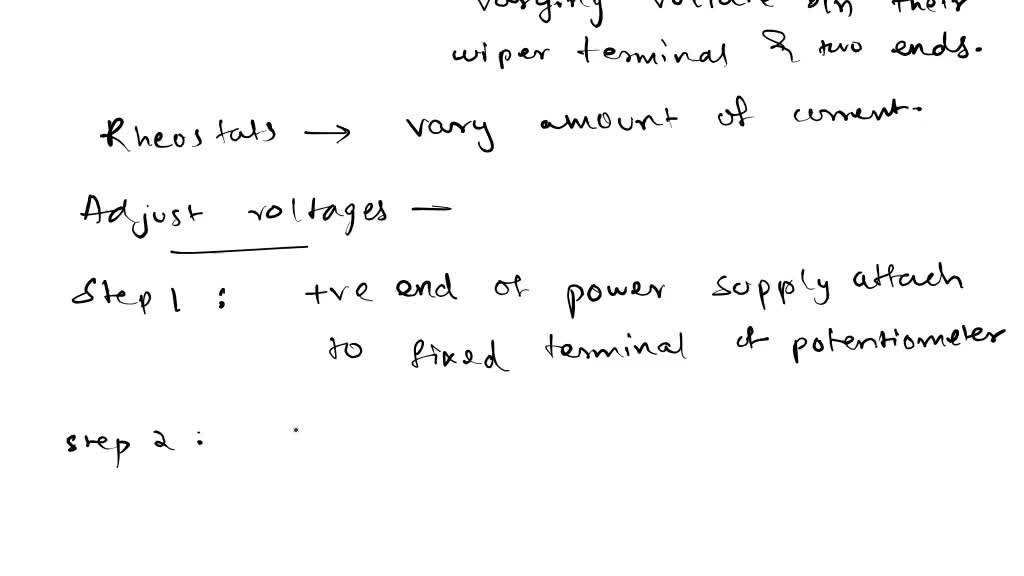 varying voltage b/n their
wiper terminal & two ends.
Rheostats → vary amount of current.
Adjust voltages —
Step 1 : +ve end of power supply attach
to fixed terminal of potentiometer
step 2 :